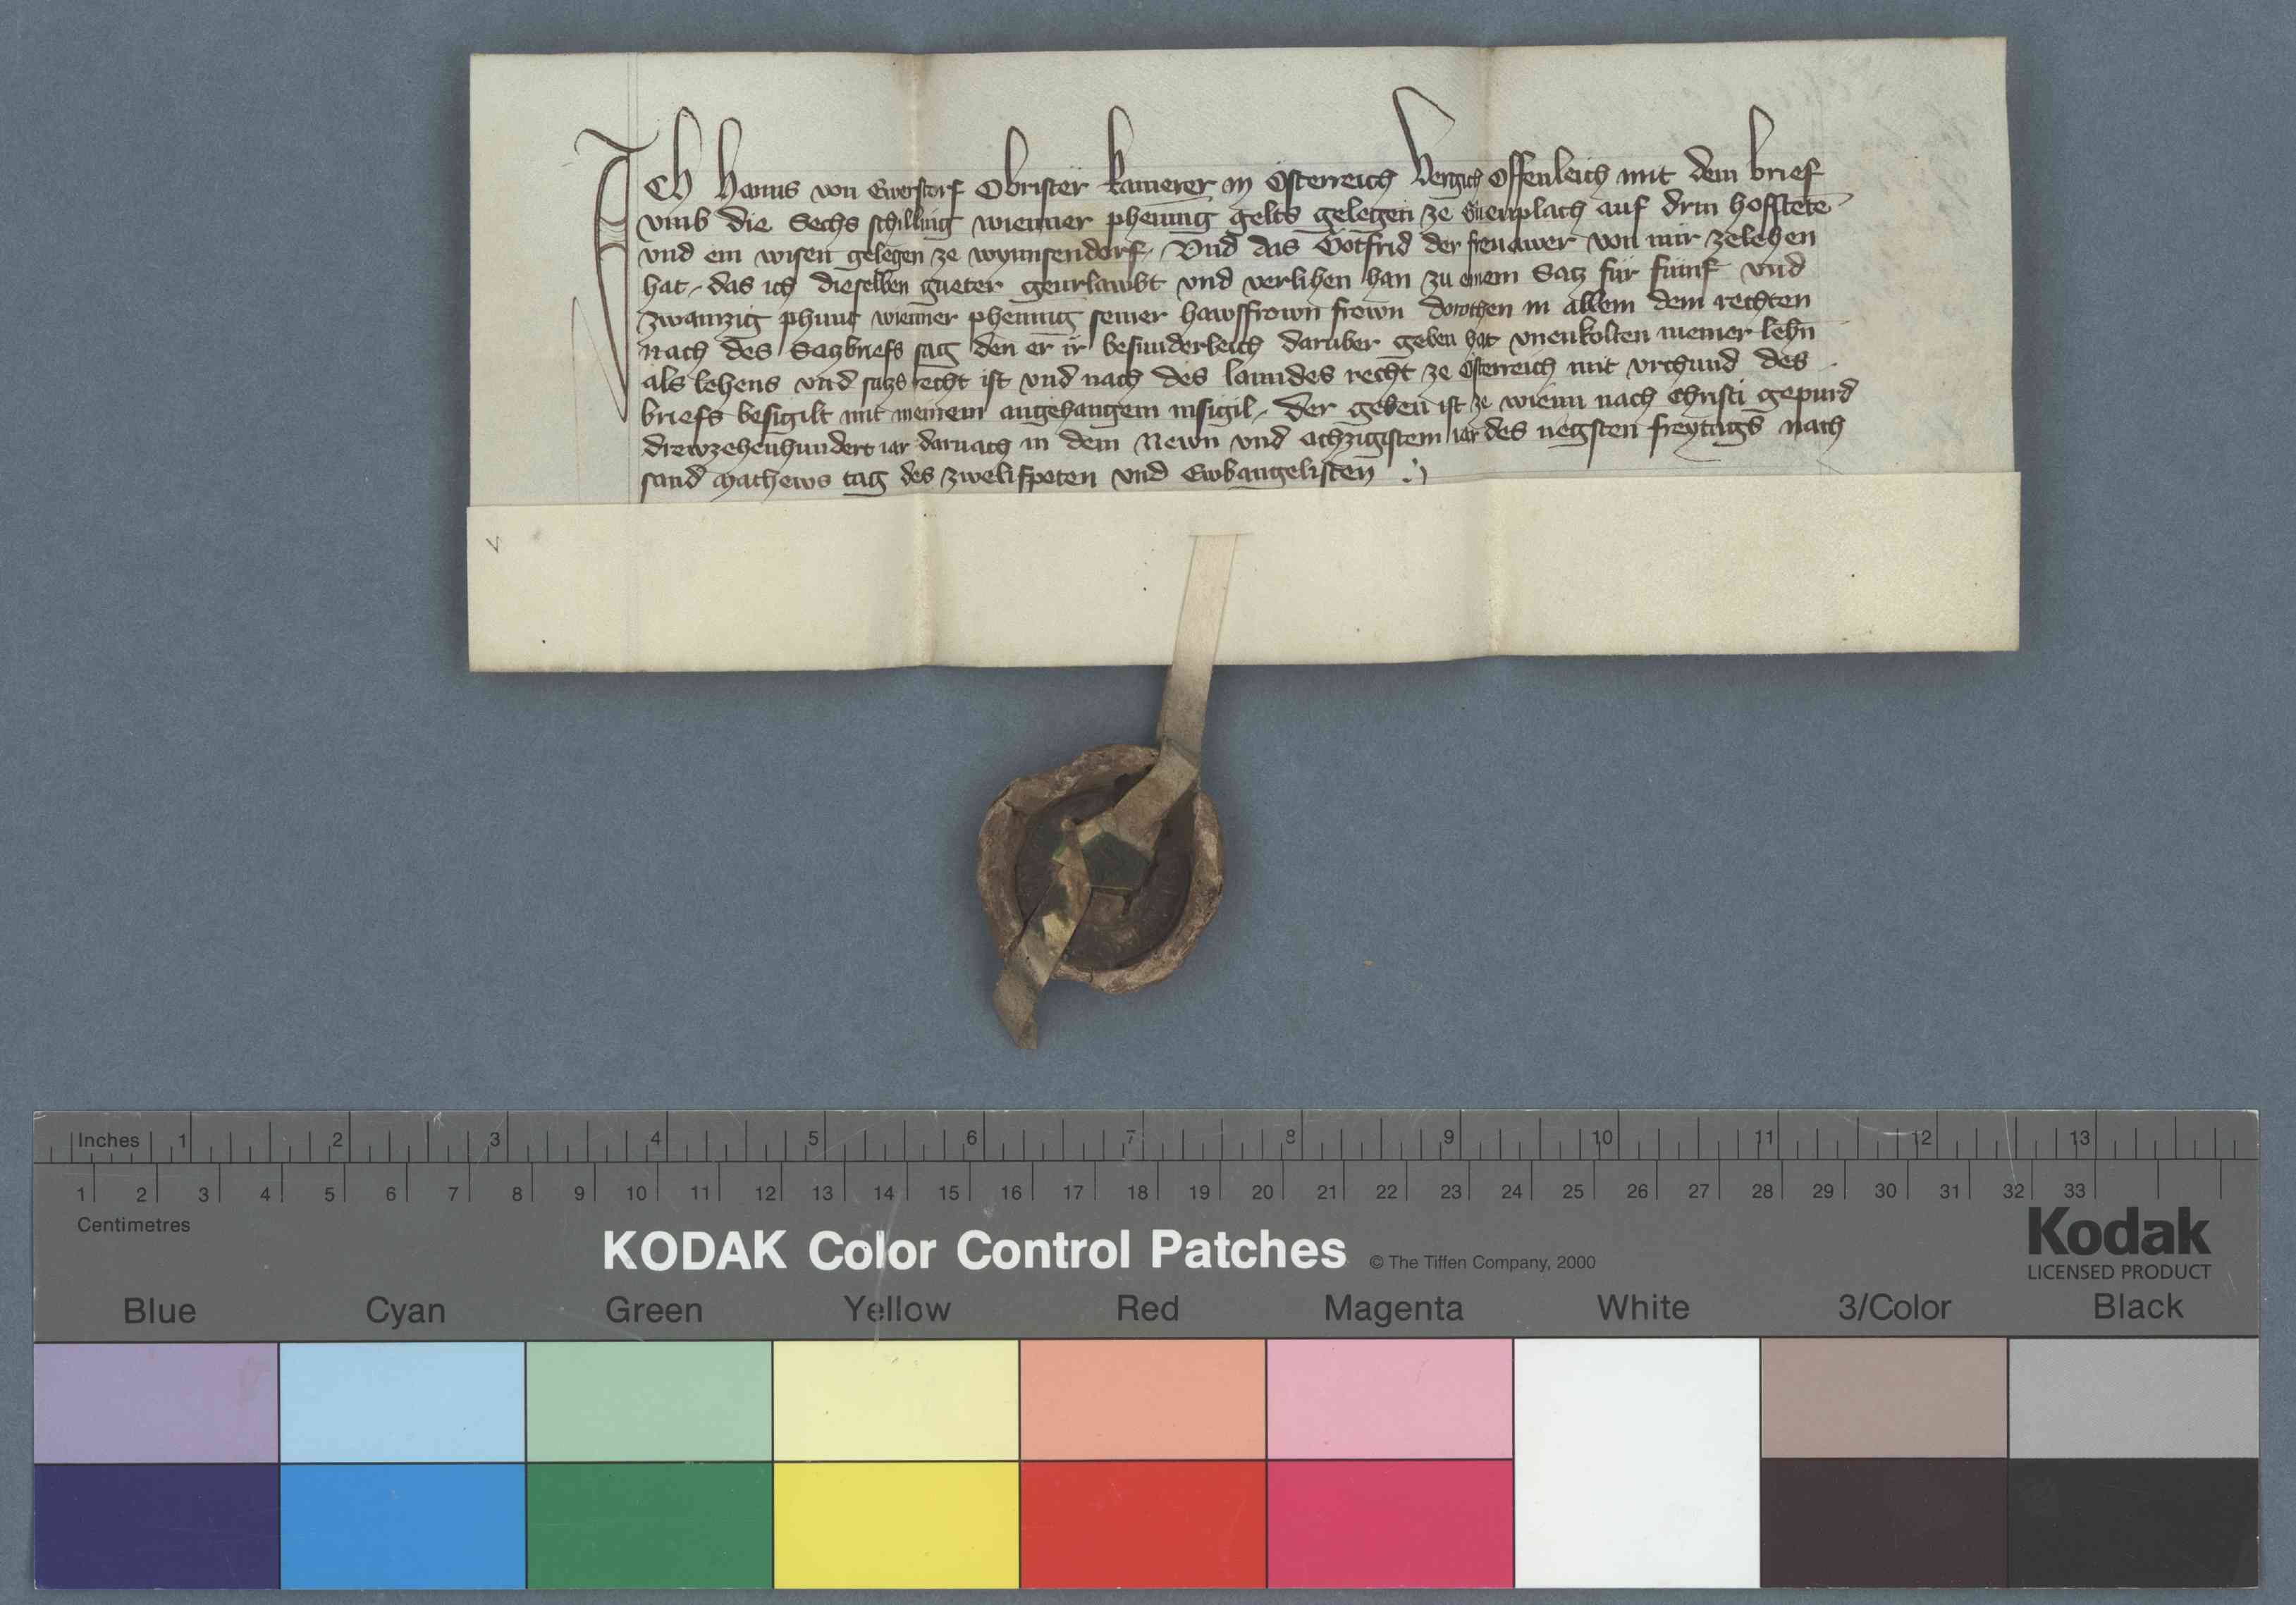 Ich Hanns von Ewerstorf Obrister kamerer in Österreich Vergich offenleich mit dem brief
vmb die Sechs schilling wienner phenning gelts gelegen ze auf drin hofsteten
vnd ein wisen gelegen ze wynnsendorf Vnd das Gotfrid der von mir zelehen
hat das ich dieselben gueter geurlawbt vnd verlihen han zu einem Satz für fünf vnd
zwainzig phunt wienner phennig seiner hawsfrown frown dorothen in allem dem rechten
nach des Satzbriefs sag den er ir besunderleich daruber geben hat vnenkolten meiner lehn
als lehens vnd satzs recht ist vnd nach des lanndes recht ze Österreich mit vrchund des
briefs besigilt mit meinem angehangem insigil der geben ist ze wienn nach Christi gepurd
drewzehenhundert iar darnach in dem Newn vnd achzigistem iar des negsten freytags nach
sand Mathews tag des zwelifpoten vnd Ewbangelisten
Inches 1 2 3 4 5 6 7 8 9 10 11 12 13
1 2 3 4 5 6 7 8 9 10 11 12 13 14 15 16 17 18 19 20 21 22 23 24 25 26 27 28 29 30 31 32 33
Centimetres
KODAK Color Control Patches © The Tiffen Company, 2000
Kodak
LICENSED PRODUCT
Blue Cyan Green Yellow Red Magenta White 3/Color Black